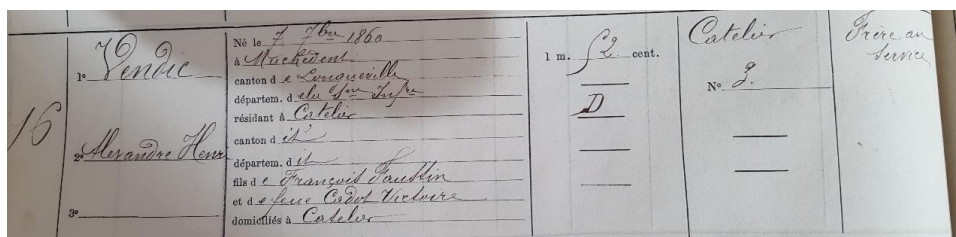 16
1º Vendic
2º Alexandre Henri
3º
Né le 7 7bre 1860
à Muchedent
canton de Longueville
départem. de la Sne Infre
résidant à Catelier
canton d it
départem. d it
fils de François Faustin
et de feue Cadot Victoire
domiciliés à Catelier
1 m. 52 cent.
D
Catelier
Nº 3.
Frère au
service